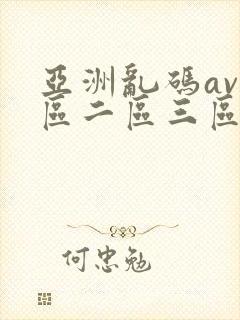 亞洲亂碼av
區二區三區
何忠勉